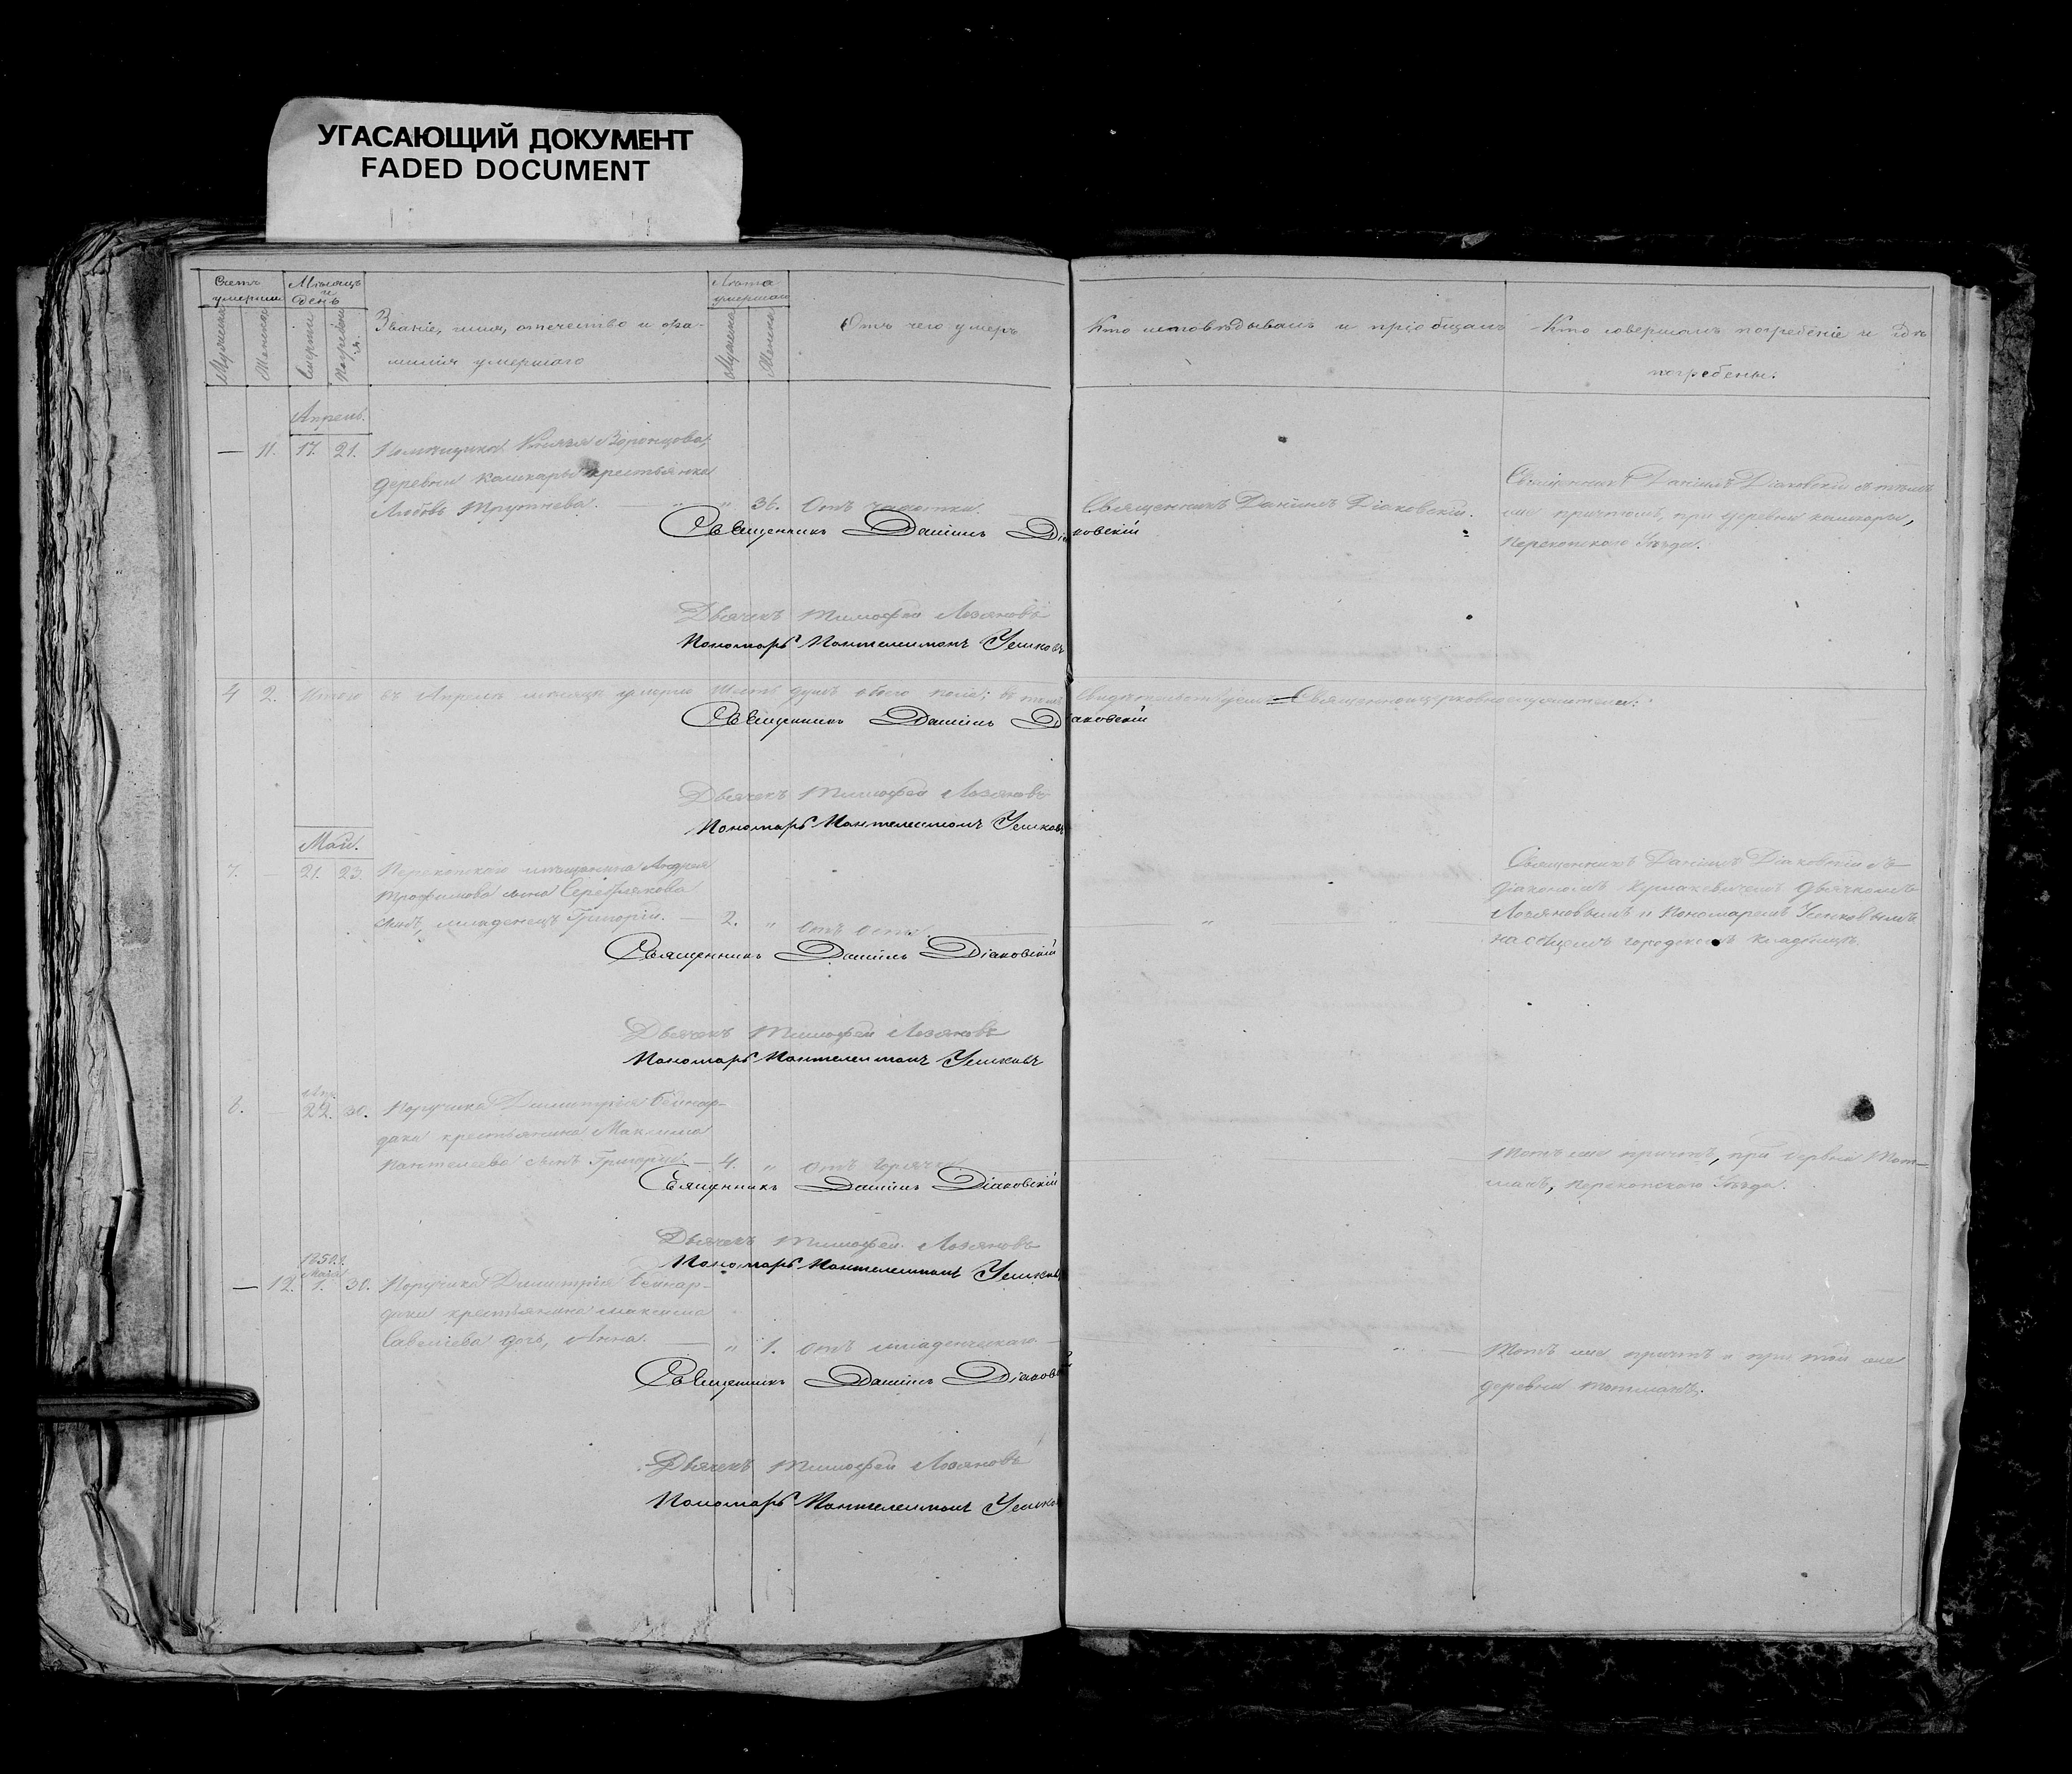 УГАСАЮЩИЙ ДОКУМЕНТ
FADED DOCUMENT
Счетъ умершихъ
Мѣсяцъ и день
Лѣта умершаго
Мужеска
Женска
Смерти
Погребенія
Званіе, имя, отчество и фа-
милія умершаго
Мужеска
Женска
Отъ чего умеръ
Кто исповѣдывалъ и пріобщалъ
Кто совершалъ погребеніе и гдѣ
погребены.
Апрель.
— 11. 17. 21. Помѣщика Князя Воронцова,
деревни Кашкары крестьянка
Любовь 36. Отъ чахотки.
Священникъ Даніилъ Діаковскій.
Священникъ Даніилъ Діаковскій съ тѣмъ
же причтомъ, при деревни Кашкары,
Перекопскаго Уѣзда.
Священникъ Даніилъ Діаковскій
Дьячекъ Тимофей Лозяновъ
Пономарь Пантелеимонъ Ушковъ
4 2. Итого въ Апрелѣ месяцѣ умерло Шесть душъ обоего пола; въ томъ свидѣтельствуемъ Священноцерковнослужители:
Священникъ Даніилъ Діаковскій
Дьячекъ Тимофей Лозяновъ
Пономарь Пантелеимонъ Ушковъ
Май.
7. — 21. 23. Перекопскаго мѣщанина Андрея
Трофимова сына Серебрякова
сынъ, младенецъ Григорій. — 2. " Отъ оспы.
Священникъ Даніилъ Діаковскій съ
діакономъ дьячкомъ
Лозяновымъ и Пономаремъ Ушковымъ
на общемъ городскомъ кладбищѣ.
Священникъ Даніилъ Діаковскій
Дьячекъ Тимофей Лозяновъ
Пономарь Пантелеимонъ Ушковъ
8. — 22. 30. Поручика Димитрія Бейнар-
даки крестьянина Максима
Пантелеева сынъ Григорій. — 4. " Отъ горячки
Тотъ же причтъ, при деревни Тот-
манъ, Перекопскаго Уѣзда.
Священникъ Даніилъ Діаковскій
Дьячекъ Тимофей Лозяновъ
Пономарь Пантелеимонъ Ушковъ
— 12. Мая 1. 30. Поручика Димитрія Бейнар-
даки крестьянина Максима
Савеліева дочь, Анна. — " 1. Отъ младенческаго
Тотъ же причтъ и при той же
деревни Тотманъ.
Священникъ Даніилъ Діаковскій
Дьячекъ Тимофей Лозяновъ
Пономарь Пантелеимонъ Ушковъ